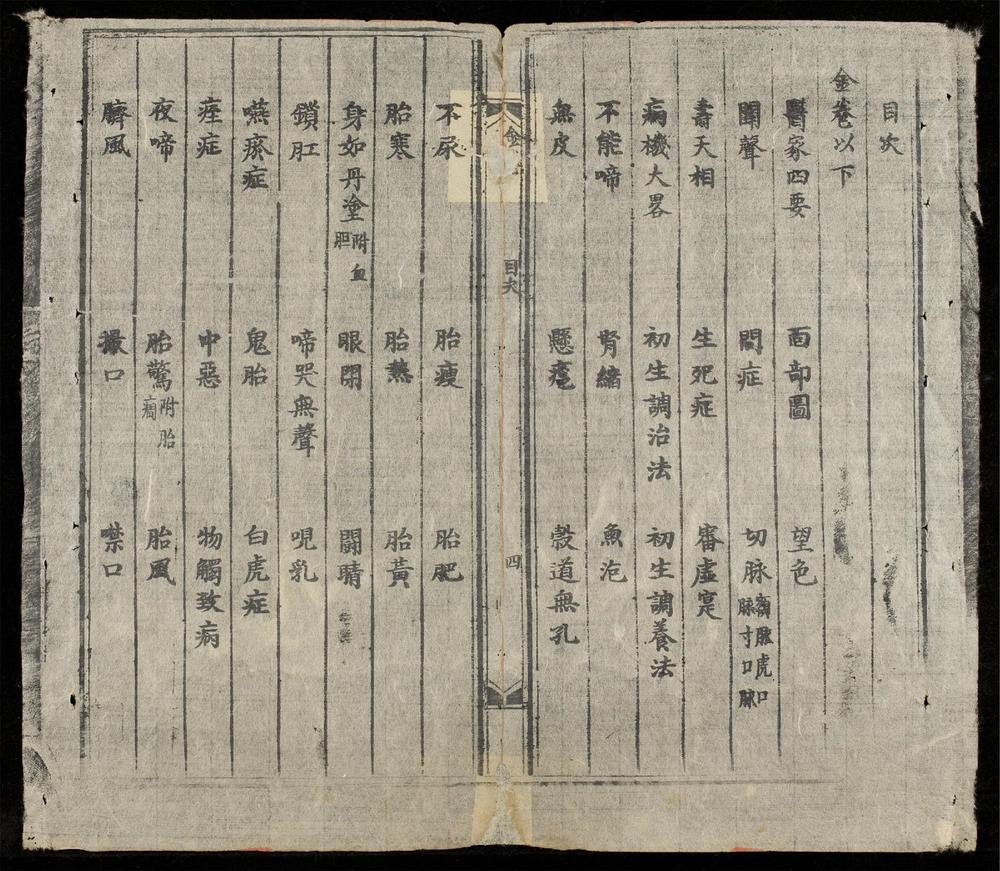 目次
金卷以下
醫家四要 面部圖 望色
聞聲 問症 切脉 虎口 脉寸口脉
壽夭相 生死症 審虛寔
病機大畧 初生調治法 初生調養法
不能啼 腎縮 魚泡
無皮 懸癰 穀道無孔
金 目次 四
不尿 胎瘦 胎肥
胎寒 胎熱 胎黃
身如丹塗 附血胆 眼閉 鬪睛
鎖肛 啼哭無聲 哯乳
嚥瘀症 鬼胎 白虎症
痙症 中惡 物觸致病
夜啼 胎驚 附胎癇 胎風
臍風 撮口 噤口